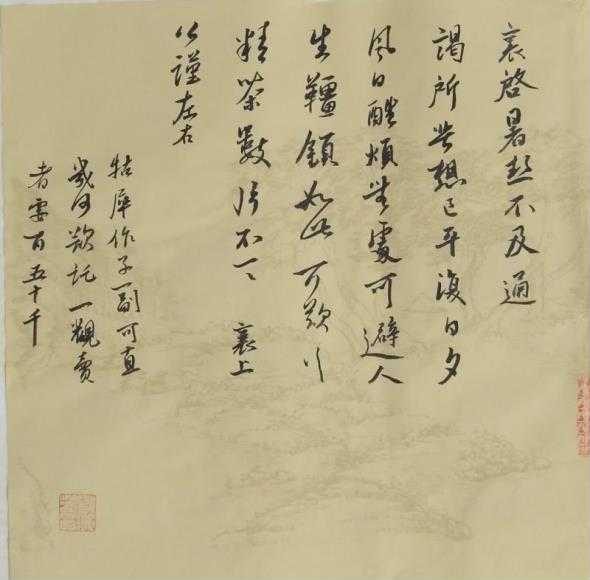 襄啓暑熱不及通
謁所苦想已平復日夕
風日酷煩無處可避人
生韁鎖如此可歎〻
精茶數片不一一 襄上
公謹左右
牯犀作子一副可直
幾何欲託一觀賣
者要百五十千